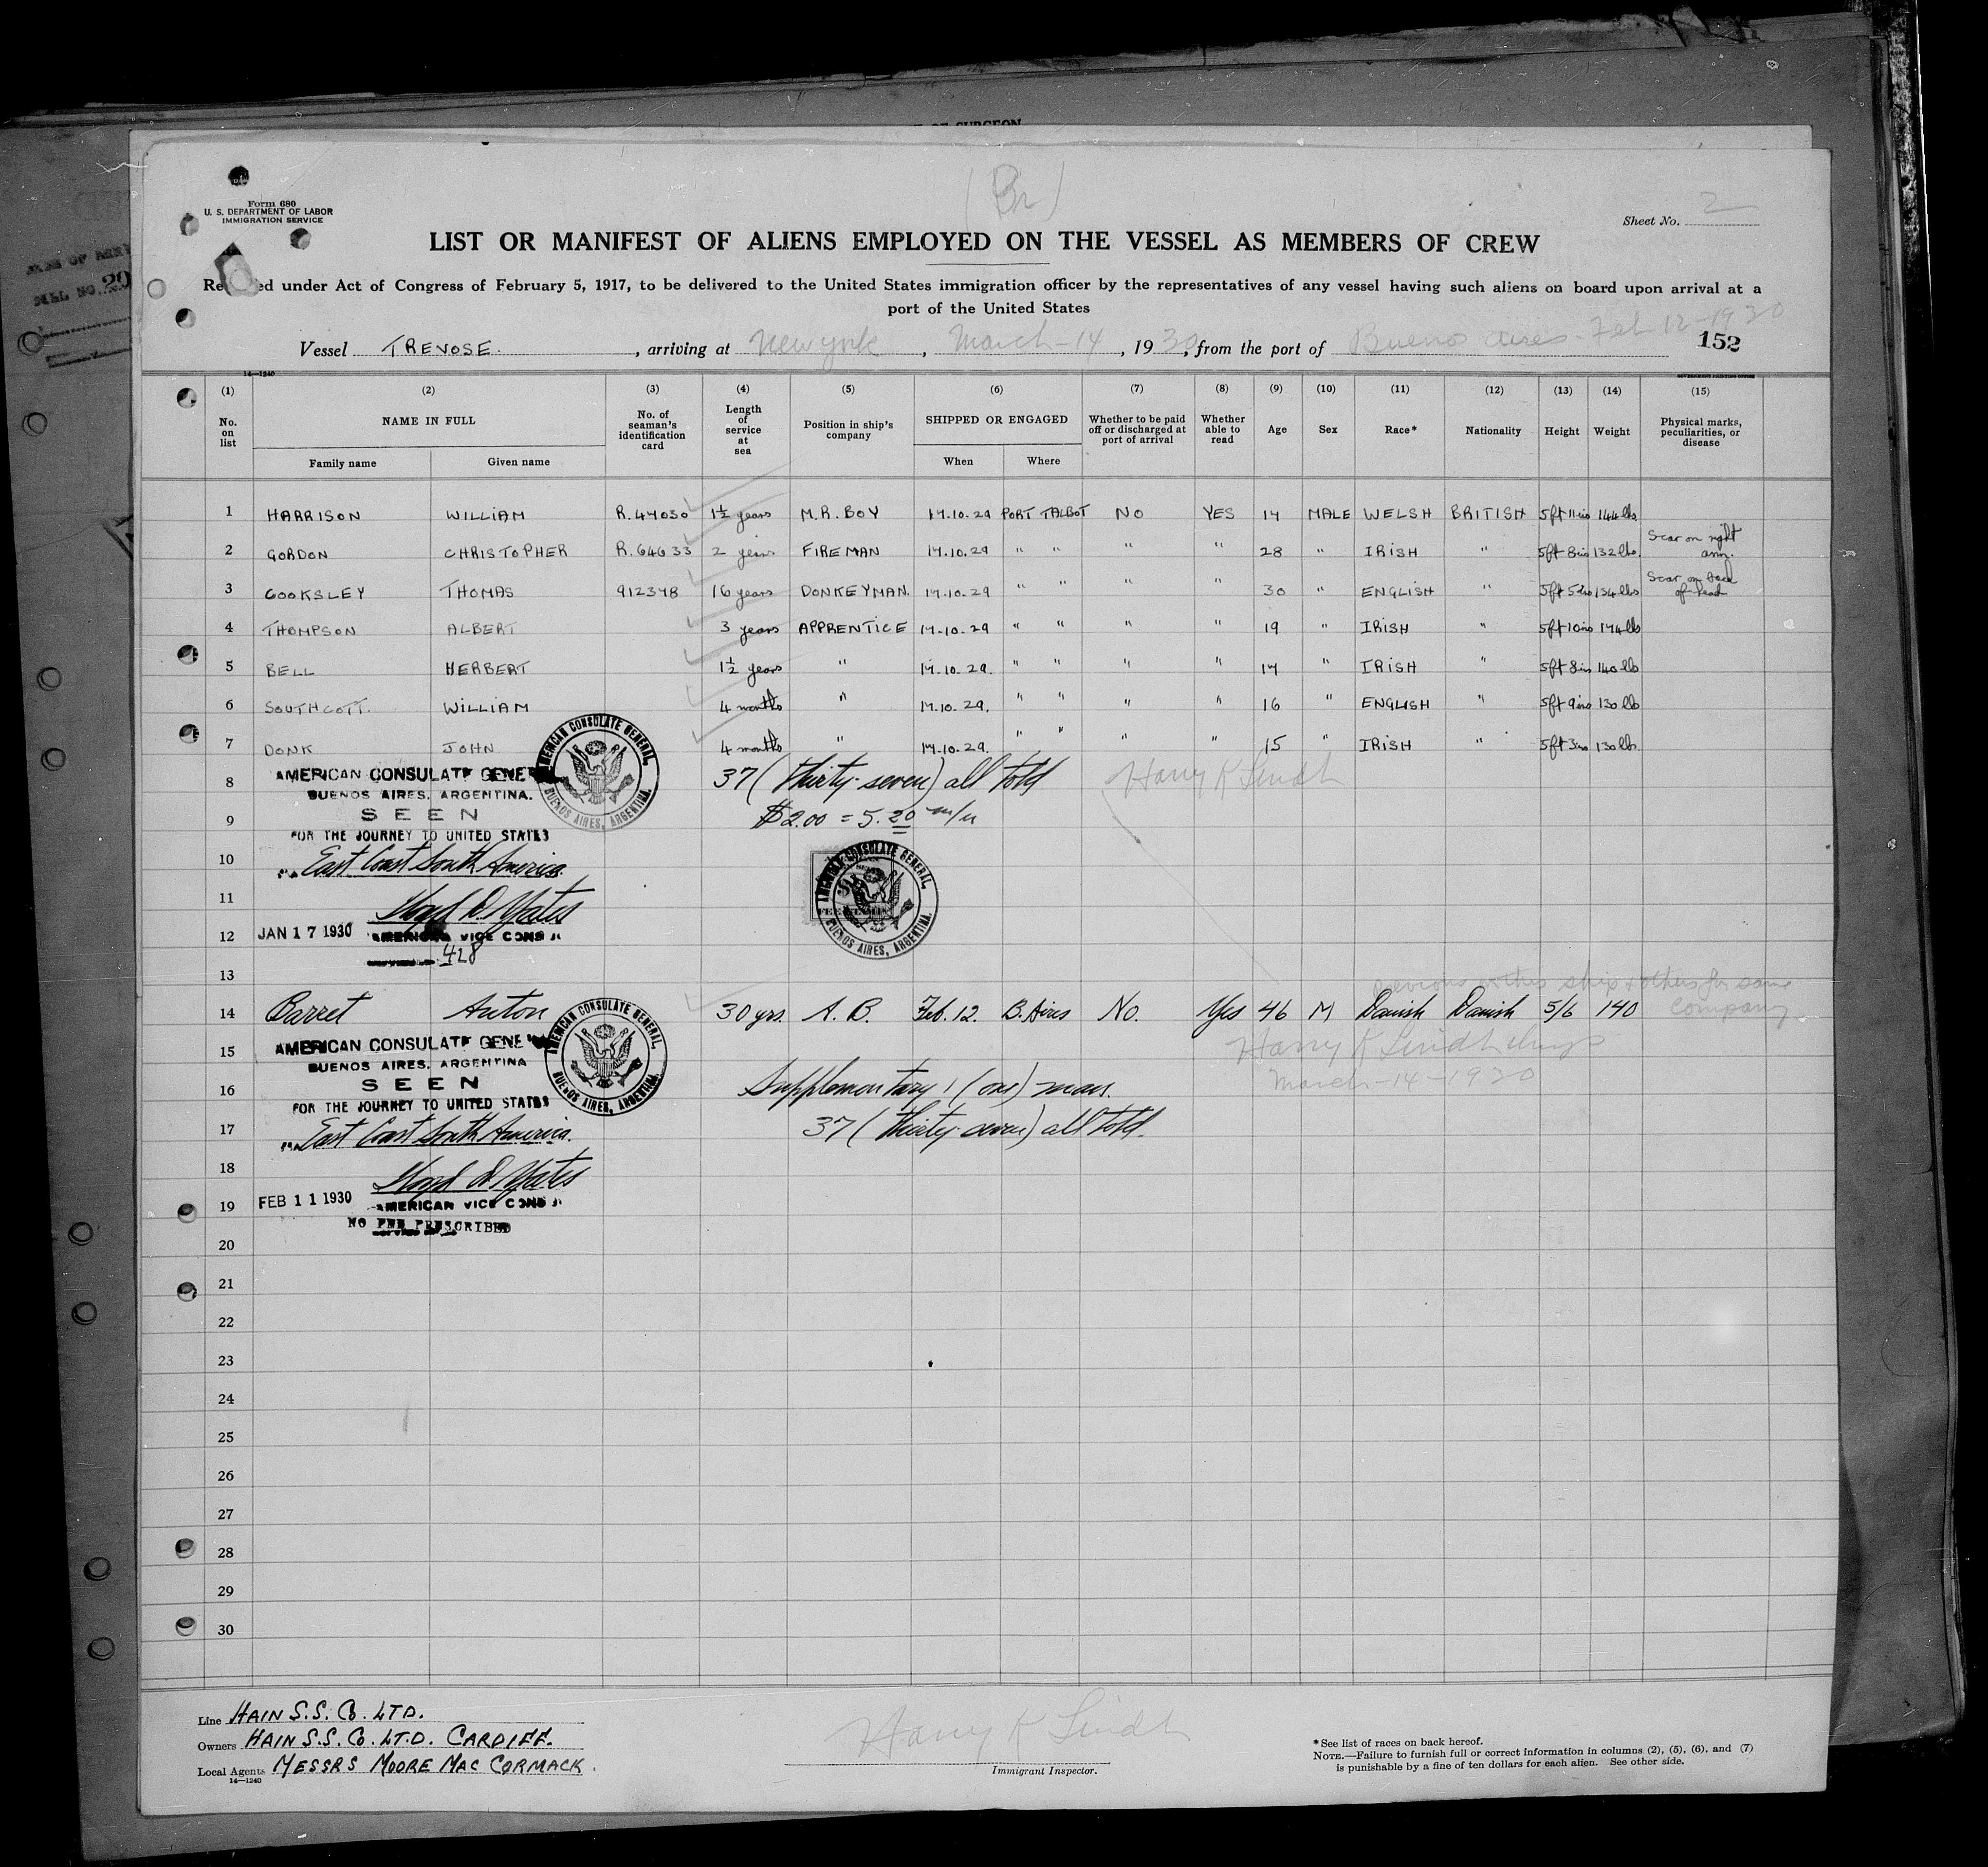 OF SURGEON
Form 680
U. S. DEPARTMENT OF LABOR
IMMIGRATION SERVICE
(Br)
Sheet No. 2
LIST OR MANIFEST OF ALIENS EMPLOYED ON THE VESSEL AS MEMBERS OF CREW
under Act of Congress of February 5, 1917, to be delivered to the United States immigration officer by the representatives of any vessel having such aliens on board upon arrival at a
port of the United States
Vessel TREVOSE. , arriving at New york , March-14 , 1930, from the port of Buenos Aires - Feb 12-1930 152
14—1240
(1) (2) (3) (4) (5) (6) (7) (8) (9) (10) (11) (12) (13) (14) (15)
No. on list NAME IN FULL No. of seaman's identification card Length of service at sea Position in ship's company SHIPPED OR ENGAGED Whether to be paid off or discharged at port of arrival Whether able to read Age Sex Race* Nationality Height Weight Physical marks, peculiarities, or disease
Family name Given name When Where
1 HARRISON WILLIAM R.47030 1½ years M.R.BOY 17.10.29 PORT TALBOT NO YES 17 MALE WELSH BRITISH 5ft 11ins 144lbs.
2 GORDON CHRISTOPHER R.64633 2 years FIREMAN 17.10.29 " " " " 28 " IRISH " 5ft 8ins 132lbs. Scar on right arm.
3 COOKSLEY THOMAS 912378 16 years DONKEYMAN. 17.10.29 " " " " 30 " ENGLISH " 5ft 5ins 134lbs Scar on back of head
4 THOMPSON ALBERT 3 years APPRENTICE 17.10.29 " " " " 19 " IRISH " 5ft 10ins 174lbs
5 BELL HERBERT 1½ years " 17.10.29. " " " " 17 " IRISH " 5ft 8ins 140lbs
6 SOUTHCOTT. WILLIAM 4 months " 17.10.29. " " " " 16 " ENGLISH " 5ft 9ins 130lbs
7 DONK JOHN 4 months " 17.10.29. " " " " 15 " IRISH " 5ft 3ins 130lbs.
8 AMERICAN CONSULATE GENE 37 (thirty-seven) all told Harry K Lindh
BUENOS AIRES, ARGENTINA.
AMERICAN CONSULATE GENERAL, BUENOS AIRES, ARGENTINA.
9 SEEN $2.00 = 5.20 m/n
FOR THE JOURNEY TO UNITED STATES
10 East Coast South America
AMERICAN CONSULATE GENERAL, BUENOS AIRES, ARGENTINA.
11 Lloyd D. Yates
12 JAN 17 1930 AMERICAN VICE CONS
428
13
previous on this ship & others for same
14 Barret Anton 30 yrs. A. B. Feb. 12. B. Aires No. Yes 46 M Danish Danish 5/6 140 company
15 AMERICAN CONSULATE GENE Harry K Lindh
BUENOS AIRES, ARGENTINA
AMERICAN CONSULATE GENERAL, BUENOS AIRES, ARGENTINA.
March-14-1930
16 SEEN Supplementary 1 (one) man.
FOR THE JOURNEY TO UNITED STATES
17 East Coast South America. 37 (thirty-seven) all told.
18 Lloyd D. Yates
19 FEB 11 1930 AMERICAN VICE CONS
NO FEE PRESCRIBED
20
21
22
23
24
25
26
27
28
29
30
Line HAIN S.S. Co. LTD.
Owners HAIN S.S. Co. LTD. CARDIFF.
Local Agents MESSRS MOORE MAC CORMACK.
14—1240
Harry K Lindh
Immigrant Inspector.
*See list of races on back hereof.
NOTE.—Failure to furnish full or correct information in columns (2), (5), (6), and (7)
is punishable by a fine of ten dollars for each alien. See other side.